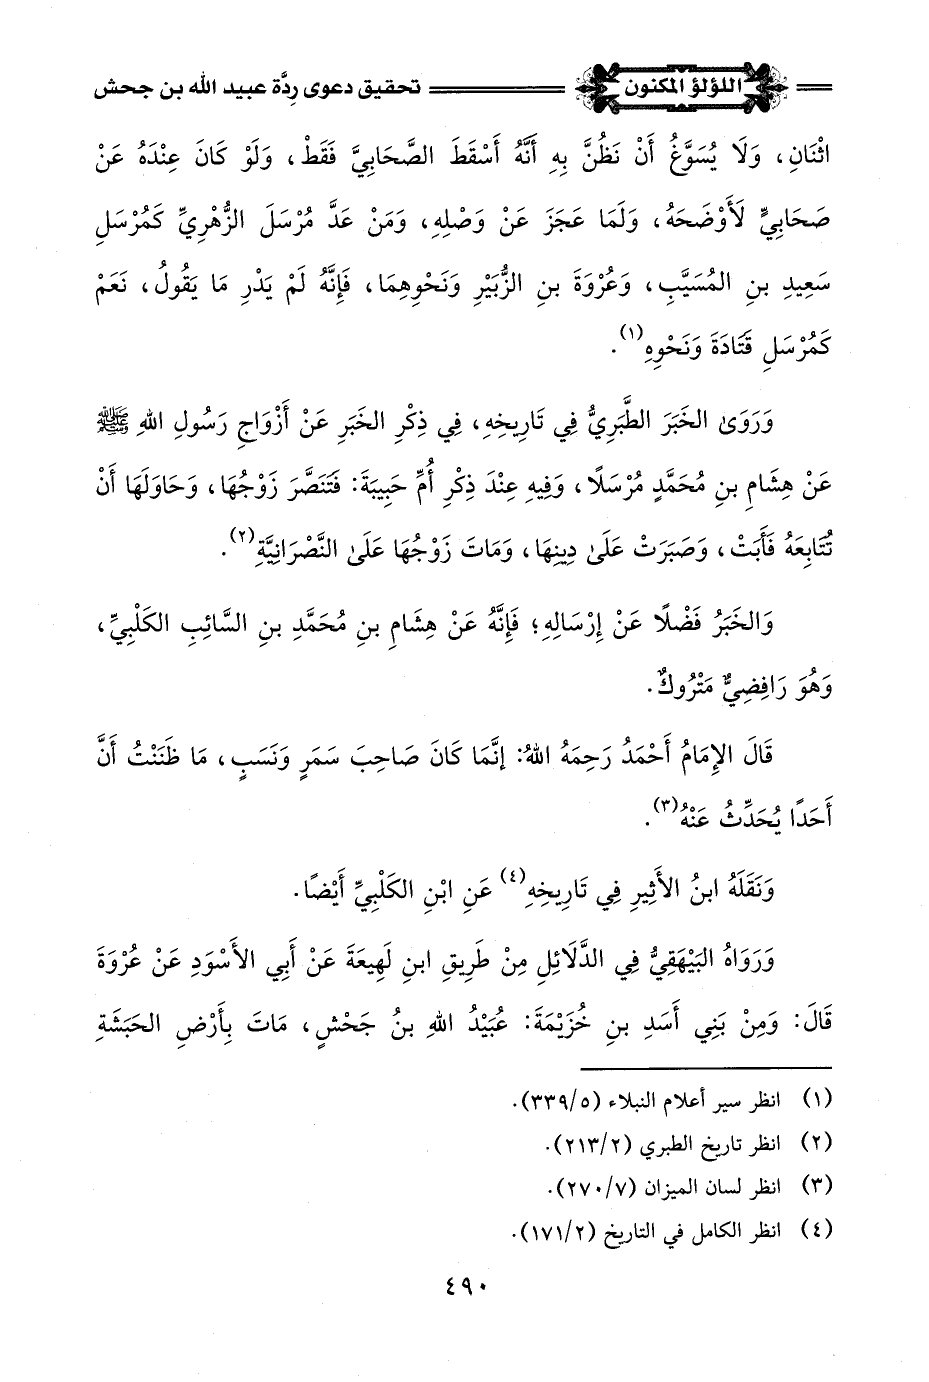 اللؤلؤ المكنون تحقيق دعوى رِدَّة عبيد الله بن جحش
اثْنَانِ، وَلَا يُسَوَّغُ أَنْ نَظُنَّ بِهِ أَنَّهُ أَسْقَطَ الصَّحَابِيَّ فَقَطْ، وَلَوْ كَانَ عِنْدَهُ عَنْ
صَحَابِيٍّ لَأَوْضَحَهُ، وَلَمَا عَجَزَ عَنْ وَصْلِهِ، وَمَنْ عَدَّ مُرْسَلَ الزُّهْرِيِّ كَمُرْسَلِ
سَعِيدِ بنِ المُسَيَّبِ، وَعُرْوَةَ بنِ الزُّبَيْرِ وَنَحْوِهِمَا، فَإِنَّهُ لَمْ يَدْرِ مَا يَقُولُ، نَعَمْ
كَمُرْسَلِ قَتَادَةَ وَنَحْوِهِ(١).
وَرَوَىٰ الخَبَرَ الطَّبَرِيُّ فِي تَارِيخِهِ، فِي ذِكْرِ الخَبَرِ عَنْ أَزْوَاجِ رَسُولِ اللهِ ﷺ
عَنْ هِشَامِ بنِ مُحَمَّدٍ مُرْسَلًا، وَفِيهِ عِنْدَ ذِكْرِ أُمِّ حَبِيبَةَ: فَتَنَصَّرَ زَوْجُهَا، وَحَاوَلَهَا أَنْ
تُتَابِعَهُ فَأَبَتْ، وَصَبَرَتْ عَلَىٰ دِينِهَا، وَمَاتَ زَوْجُهَا عَلَىٰ النَّصْرَانِيَّةِ(٢).
وَالخَبَرُ فَضْلًا عَنْ إِرْسَالِهِ؛ فَإِنَّهُ عَنْ هِشَامِ بنِ مُحَمَّدِ بنِ السَّائِبِ الكَلْبِيِّ،
وَهُوَ رَافِضِيٌّ مَتْرُوكٌ.
قَالَ الإِمَامُ أَحْمَدُ رَحِمَهُ اللهُ: إِنَّمَا كَانَ صَاحِبَ سَمَرٍ وَنَسَبٍ، مَا ظَنَنْتُ أَنَّ
أَحَدًا يُحَدِّثُ عَنْهُ(٣).
وَنَقَلَهُ ابنُ الأَثِيرِ فِي تَارِيخِهِ(٤) عَنِ ابْنِ الكَلْبِيِّ أَيْضًا.
وَرَوَاهُ البَيْهَقِيُّ فِي الدَّلَائِلِ مِنْ طَرِيقِ ابنِ لَهِيعَةَ عَنْ أَبِي الأَسْوَدِ عَنْ عُرْوَةَ
قَالَ: وَمِنْ بَنِي أَسَدِ بنِ خُزَيْمَةَ: عُبَيْدُ اللهِ بنُ جَحْشٍ، مَاتَ بِأَرْضِ الحَبَشَةِ
(١) انظر سير أعلام النبلاء (٣٣٩/٥).
(٢) انظر تاريخ الطبري (٢١٣/٢).
(٣) انظر لسان الميزان (٢٧٠/٧).
(٤) انظر الكامل في التاريخ (١٧١/٢).
٤٩٠